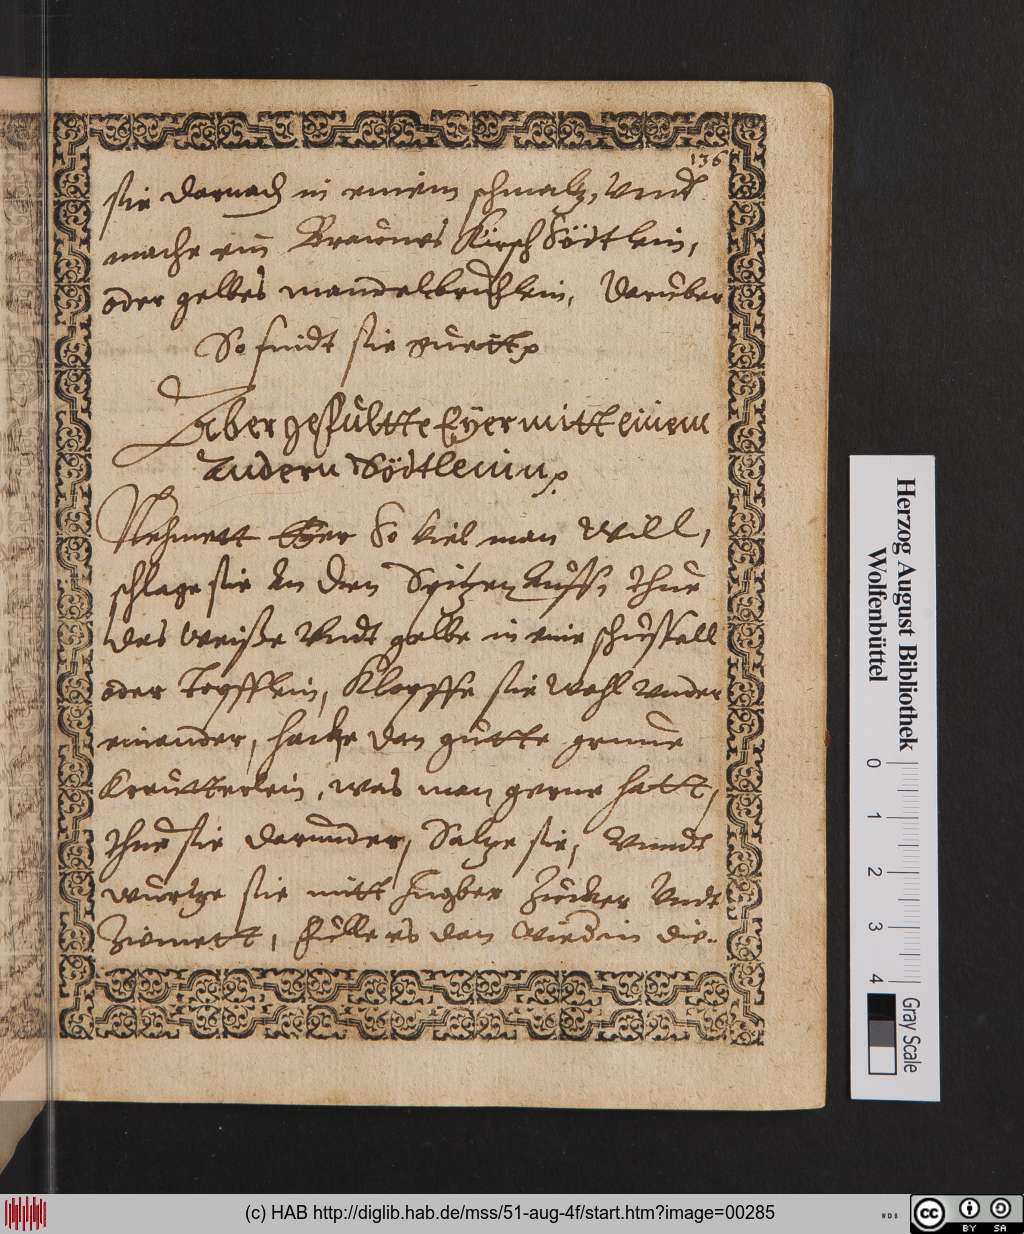 136
sie darnach in einem schmaltz, vnndt
mache ein Braunes Kirsch Södtlein,
oder gelbes mandelbrüchlein, daruber
So sindt sie guett
Aber gefultte Eÿer mitt einem
Andern Södtlein
Nehmett Eÿer so viel man will,
schlage sie An den Spitzen Auff, thue
das weiße Vndt gelbe in eine schüssell
oder Topfflein, Klopffe sie wohl vnder
einander, hacke dan gutte grune
Kreutterlein, was man gerne hatt,
thue sie darunder, Saltze sie, Vnndt
wurtze sie mitt Ingber Zucker Vndt
Zimett, fülle es dan wied in die
Herzog August Bibliothek
Wolfenbüttel
0 1 2 3 4
Gray Scale
(c) HAB http://diglib.hab.de/mss/51-aug-4f/start.htm?image=00285
WDB
cc BY SA